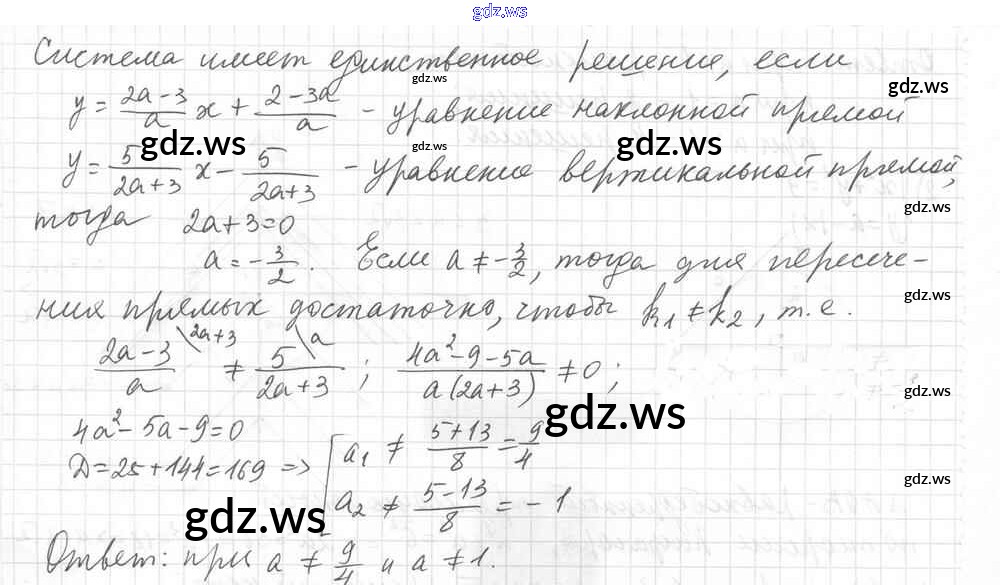 gdz.ws
Система имеет единственное решение, если
gdz.ws
gdz.ws
y = \frac{2a-3}{a} x + \frac{2-3a}{a} - уравнение наклонной прямой
gdz.ws
gdz.ws
gdz.ws
y = \frac{5}{2a+3} x - \frac{5}{2a+3} - уравнение вертикальной прямой,
gdz.ws
тогда 2a+3=0
a = -\frac{3}{2}. Если a ≠ -\frac{3}{2}, тогда для пересече-
gdz.ws
ния прямых достаточно, чтобы k₁ ≠ k₂, т.е.
\frac{2a-3}{a}^{\2a+3} ≠ \frac{5}{2a+3}^{\a} ; \frac{4a²-9-5a}{a(2a+3)} ≠ 0 ;
gdz.ws
gdz.ws
4a²-5a-9=0
D=25+144=169 => [ a₁ ≠ \frac{5+13}{8} = \frac{9}{4}
gdz.ws
a₂ ≠ \frac{5-13}{8} = -1
gdz.ws
Ответ: при a ≠ \frac{9}{4} и a ≠ 1.
gdz.ws